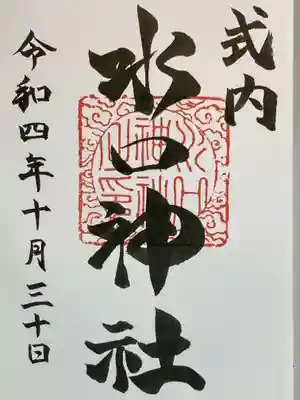 式内
水口神社
令和四年十月三十日